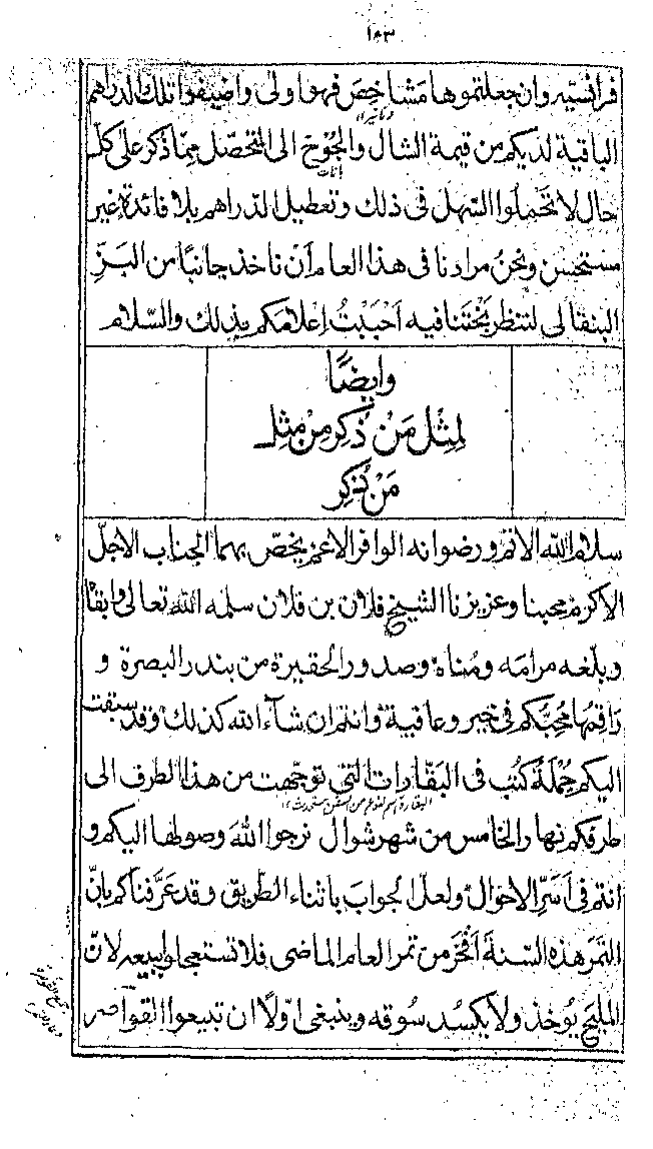 ١٥٣
فرانسيّه وان جعلتموها مَشاخِصَ فهو اولى واضيفوا تلك الدراهم
الباقية لديكم من قيمة الشال والجُوْخ الى المتحصّل ممّا ذكر على كلّ
حال لا تحملوا السّهل فى ذلك وتعطيل الدّراهم بلا فائدة غير
مستحسن ونحنُ مرادنا فى هذا العام أنْ ناخذ جانبًا من البَزِّ
البنقالى لننظر بَخْتَنا فيه اَحْبَبْتُ اِعْلامَكم بذلك والسّلام
وايضًا
لِمِثْل مَنْ ذُكِر مِنْ مِثِل
مَنْ ذُكِر
سلام الله الاتم ورضوانه الوافر الاعم يخصّ بهما الجناب الاجلّ
الاكرم محبنا وعزيزنا الشيخ فلان بن فلان سلمه الله تعالى وابقاه
وبلغه مرامَه ومُناه وصدور الحقيرة من بندر البصرة و
رَاقِمُها مُحِبُّكم فى خير وعافية وانتم ان شآء الله كذلك وقد سبقت
اليكم جُمْلَةُ كتُب فى البَقّارات التى توجّهت من هذا الطرف الى
البقارة اسم لنوع من السفن
طرفكم نهار الخامس من شهر شوال نرجوا اللهَ وصولها اليكم و
انتم فى اَسَرِّ الاحوال ولعلّ الجوابَ باثناء الطريق وقد عَرَّفناكم بانّ
التمرَ هذه السّنةَ اَفْخَرُ من تمر العام الماضى فلا تستعجلوا ببيعه لانّ
المليحَ يُوخذ ولا يكسُد سُوقه وينبغى اوّلًا ان تبيعوا القواصر